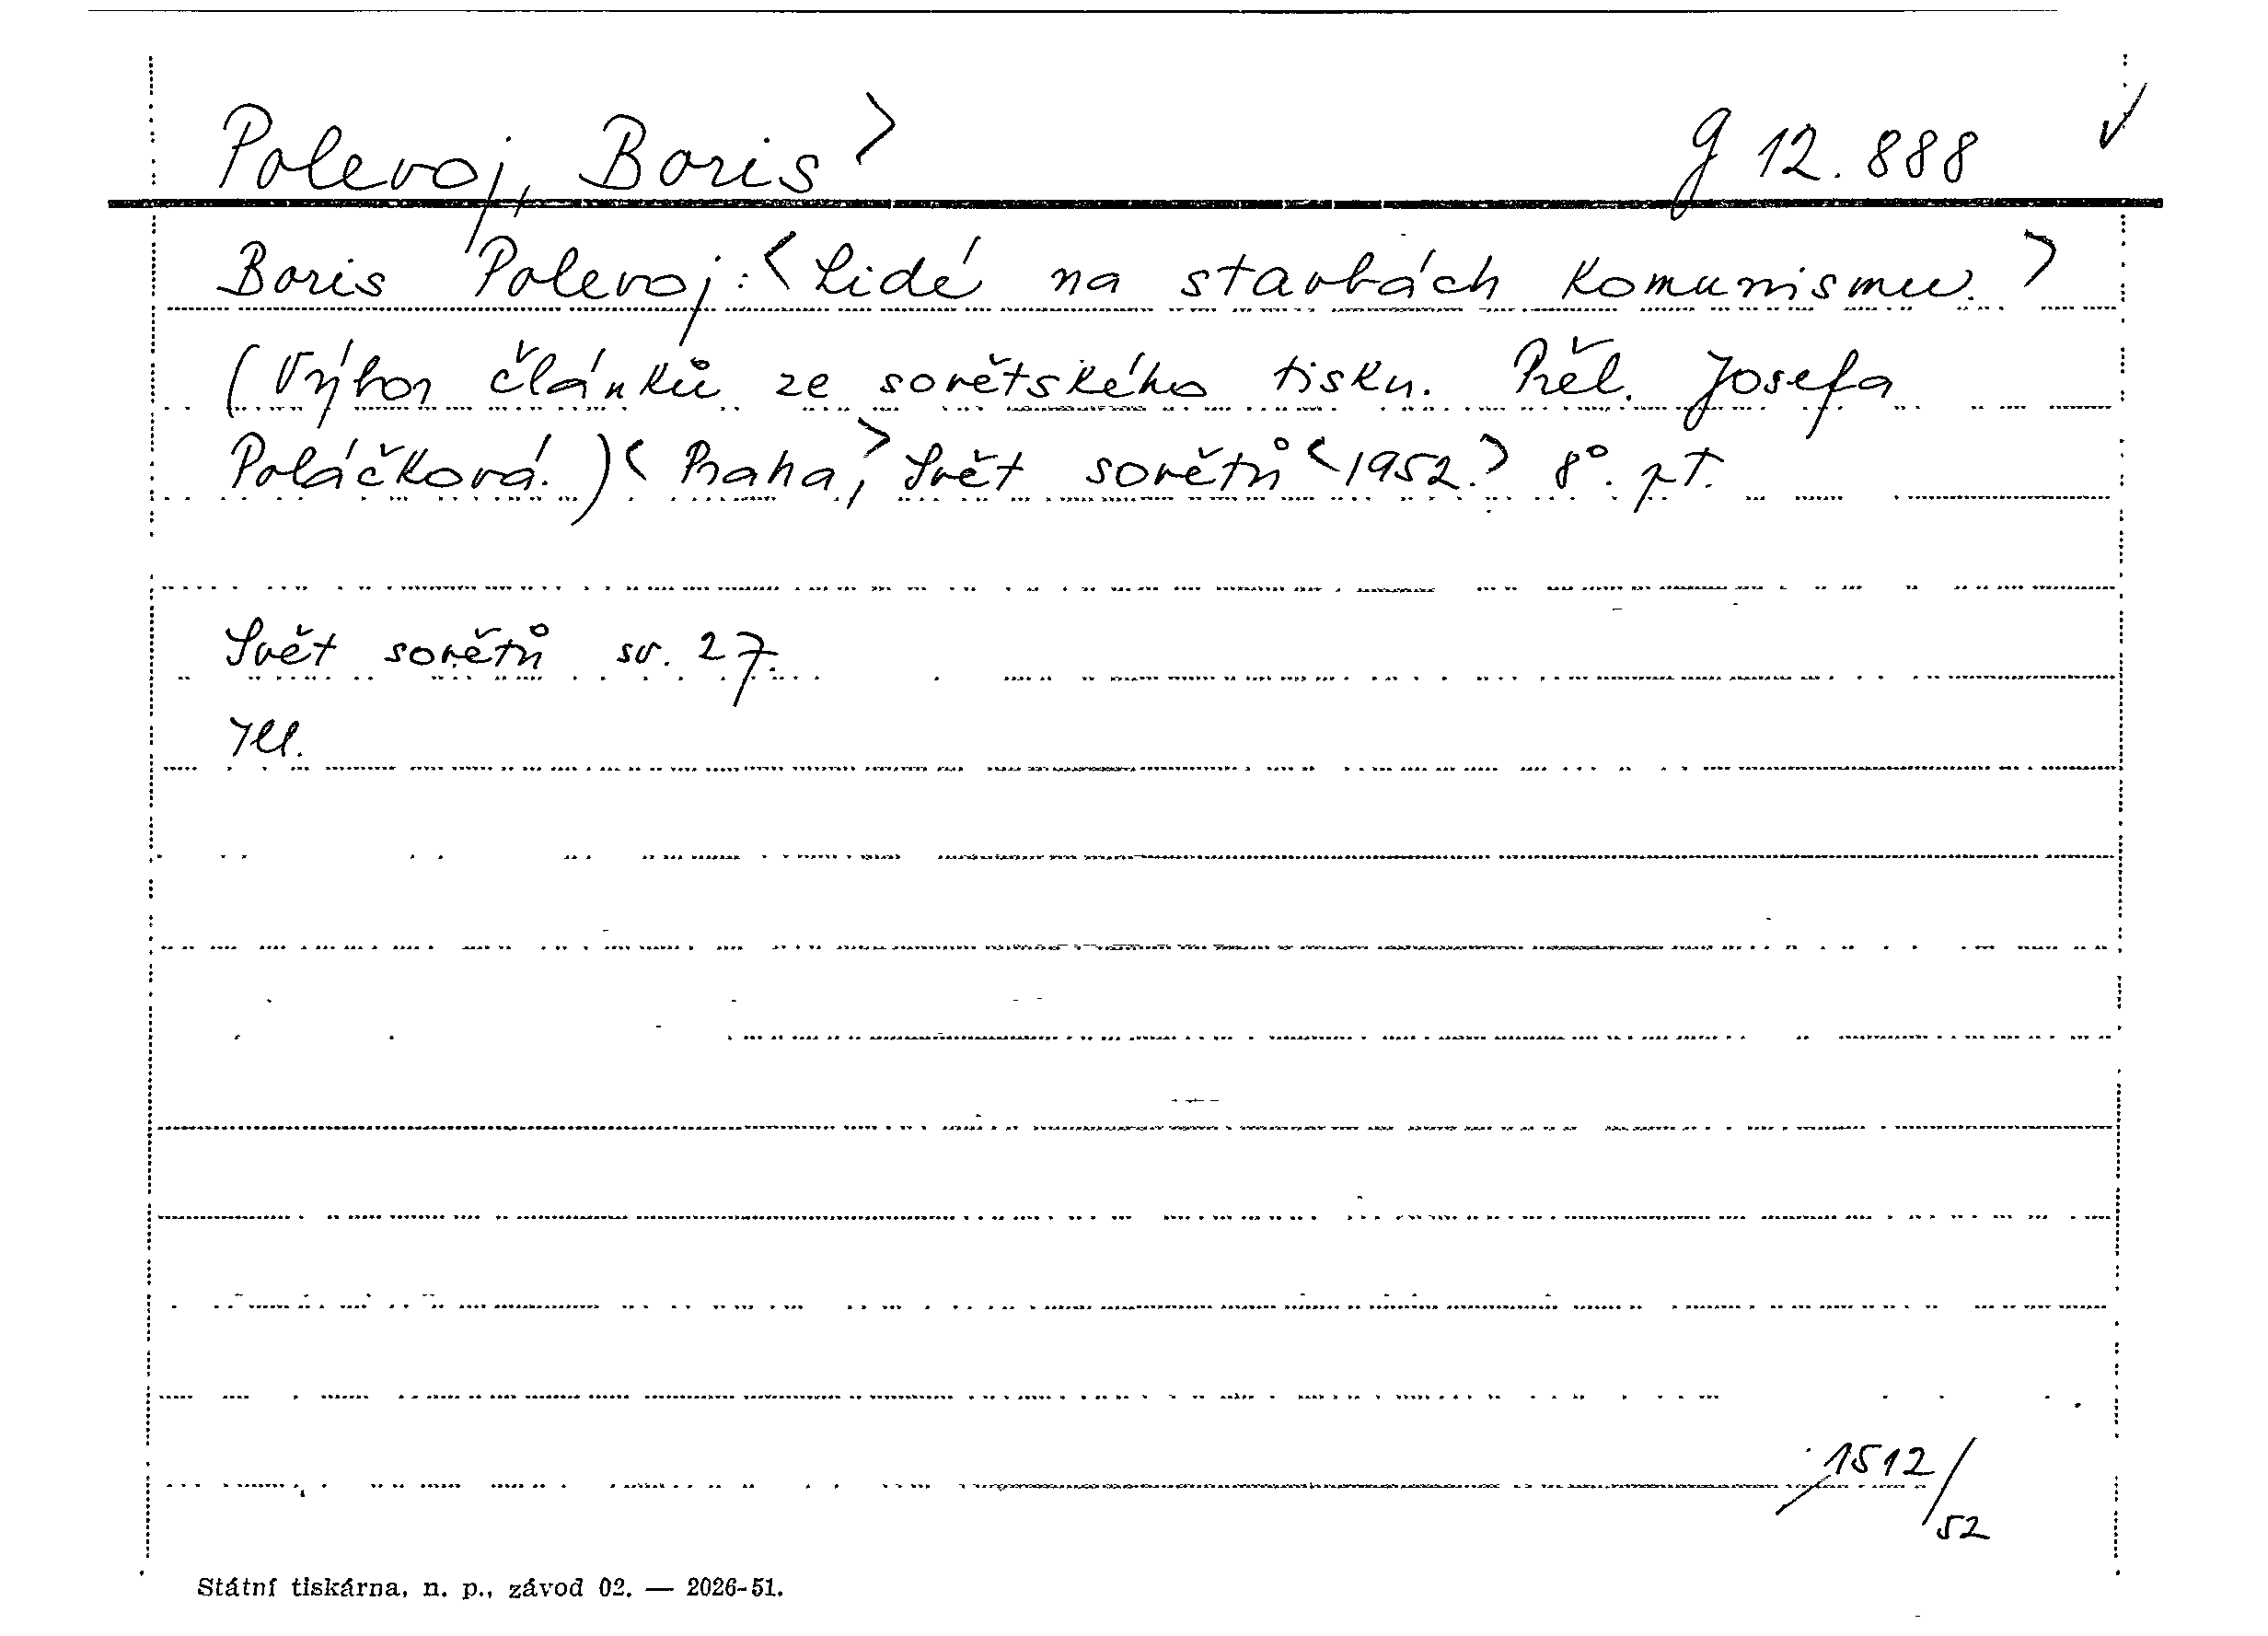 Polevoj, Boris> g 12.888 ✓
Boris Polevoj: <Lidé na stavbách komunismu.>
(Výbor článků ze sovětského tisku. Přel. Josefa
Poláčková.) <Praha,> Svět sovětů <1952.> 8°. pt.
Svět sovětů sv. 27.
Ill.
1512/52
Státní tiskárna, n. p., závod 02. — 2026-51.